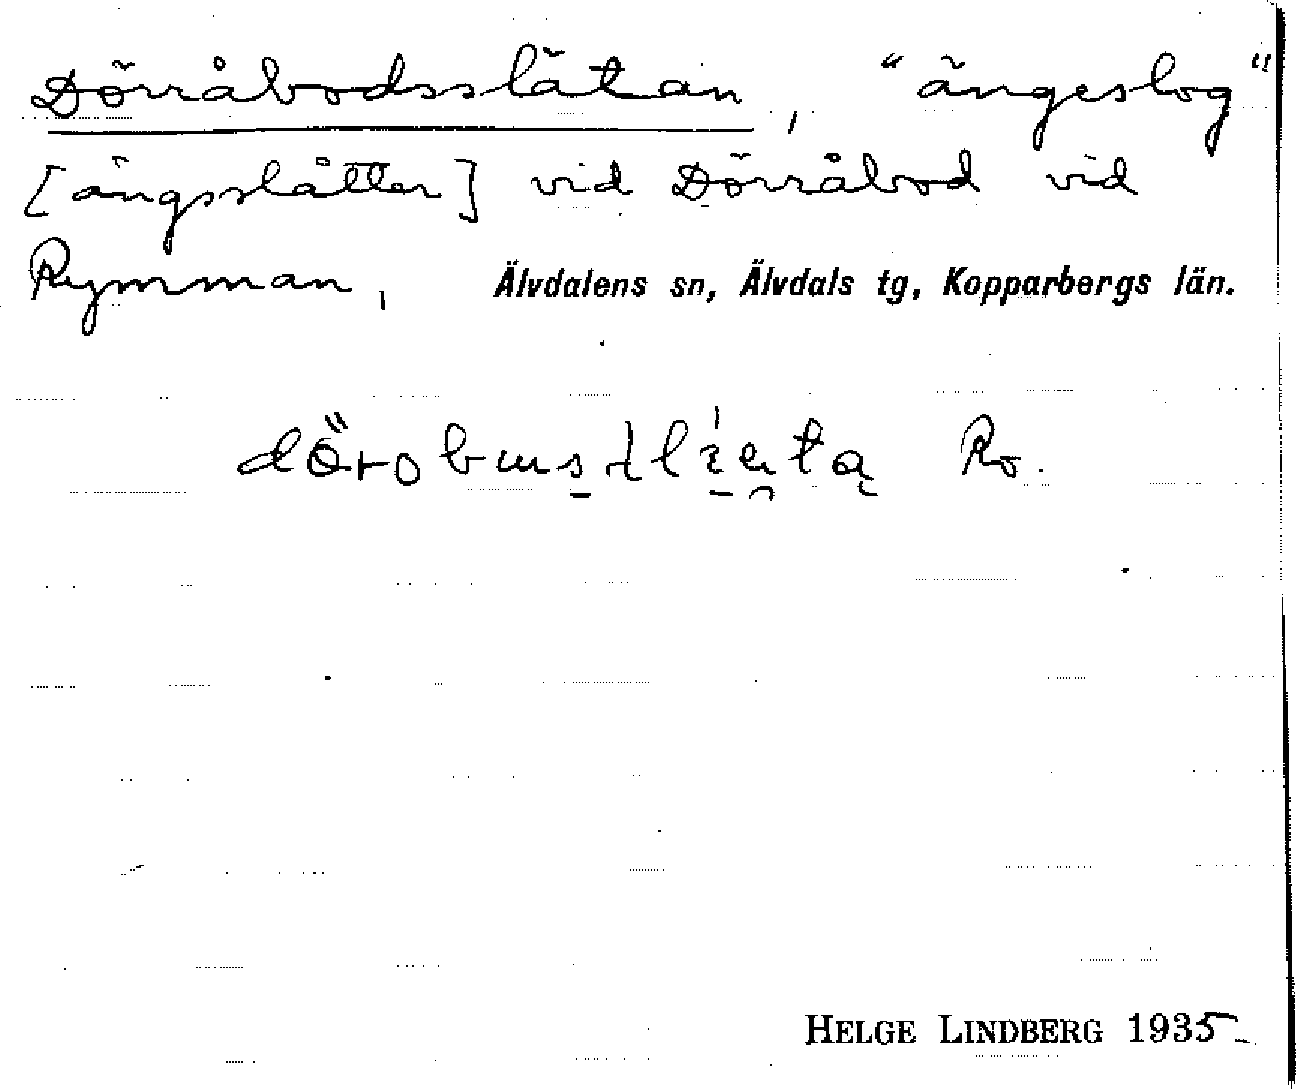 Dörråbodsslätan, "ängeslog"
[ängsslåtter] vid Dörråbod vid
Rymman, Älvdalens sn, Älvdals tg, Kopparbergs län.
Ro.
HELGE LINDBERG 1935